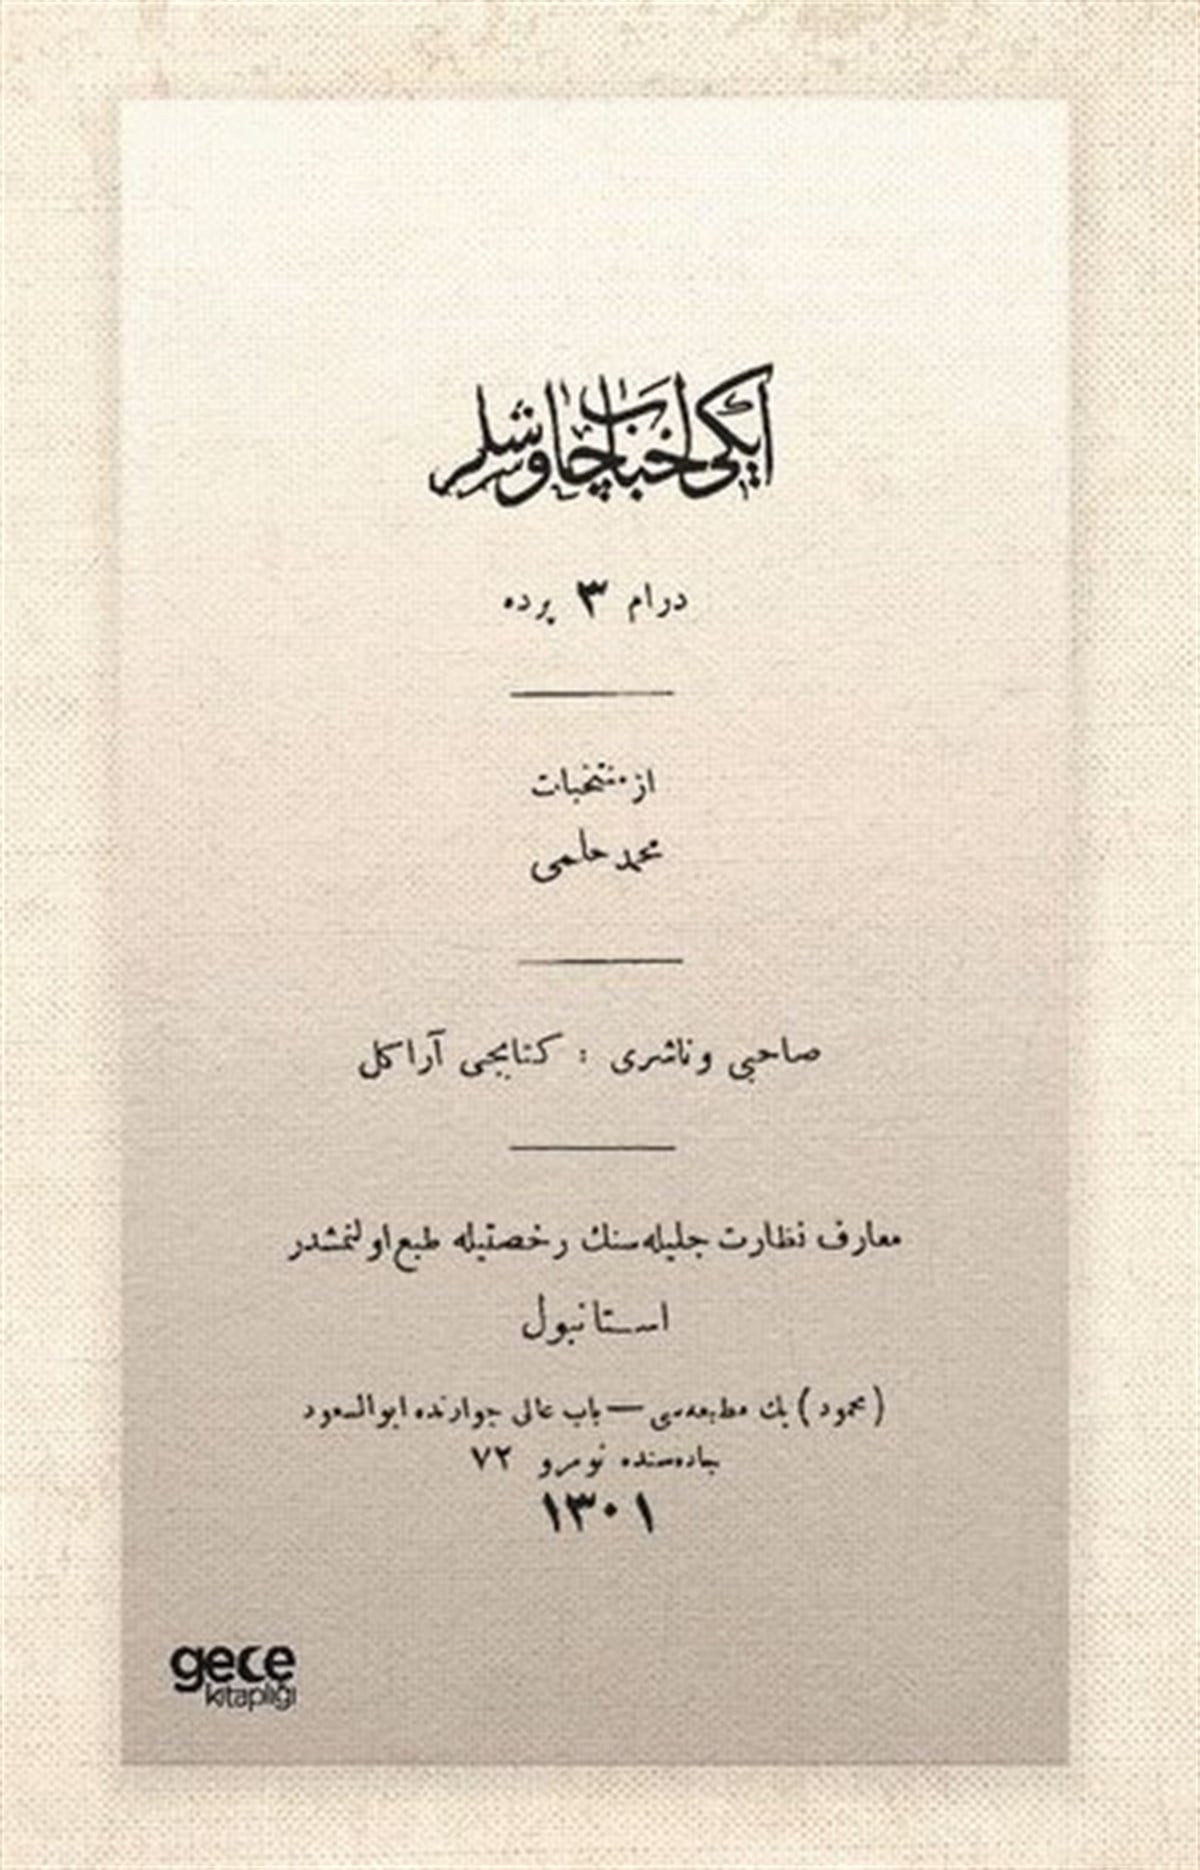 ایکی احباب چاوشلر
درام ۳ پرده
از منتخبات
محمد حلمی
صاحبی و ناشری : کتابجی آراکل
معارف نظارت جلیله‌سنك رخصتیله طبع اولنمشدر
استانبول
(محمود) بك مطبعه‌سی — باب عالی جوارنده ابوالسعود
جاده‌سنده نومرو ۷۲
۱۳۰۱
gece
kitaplığı